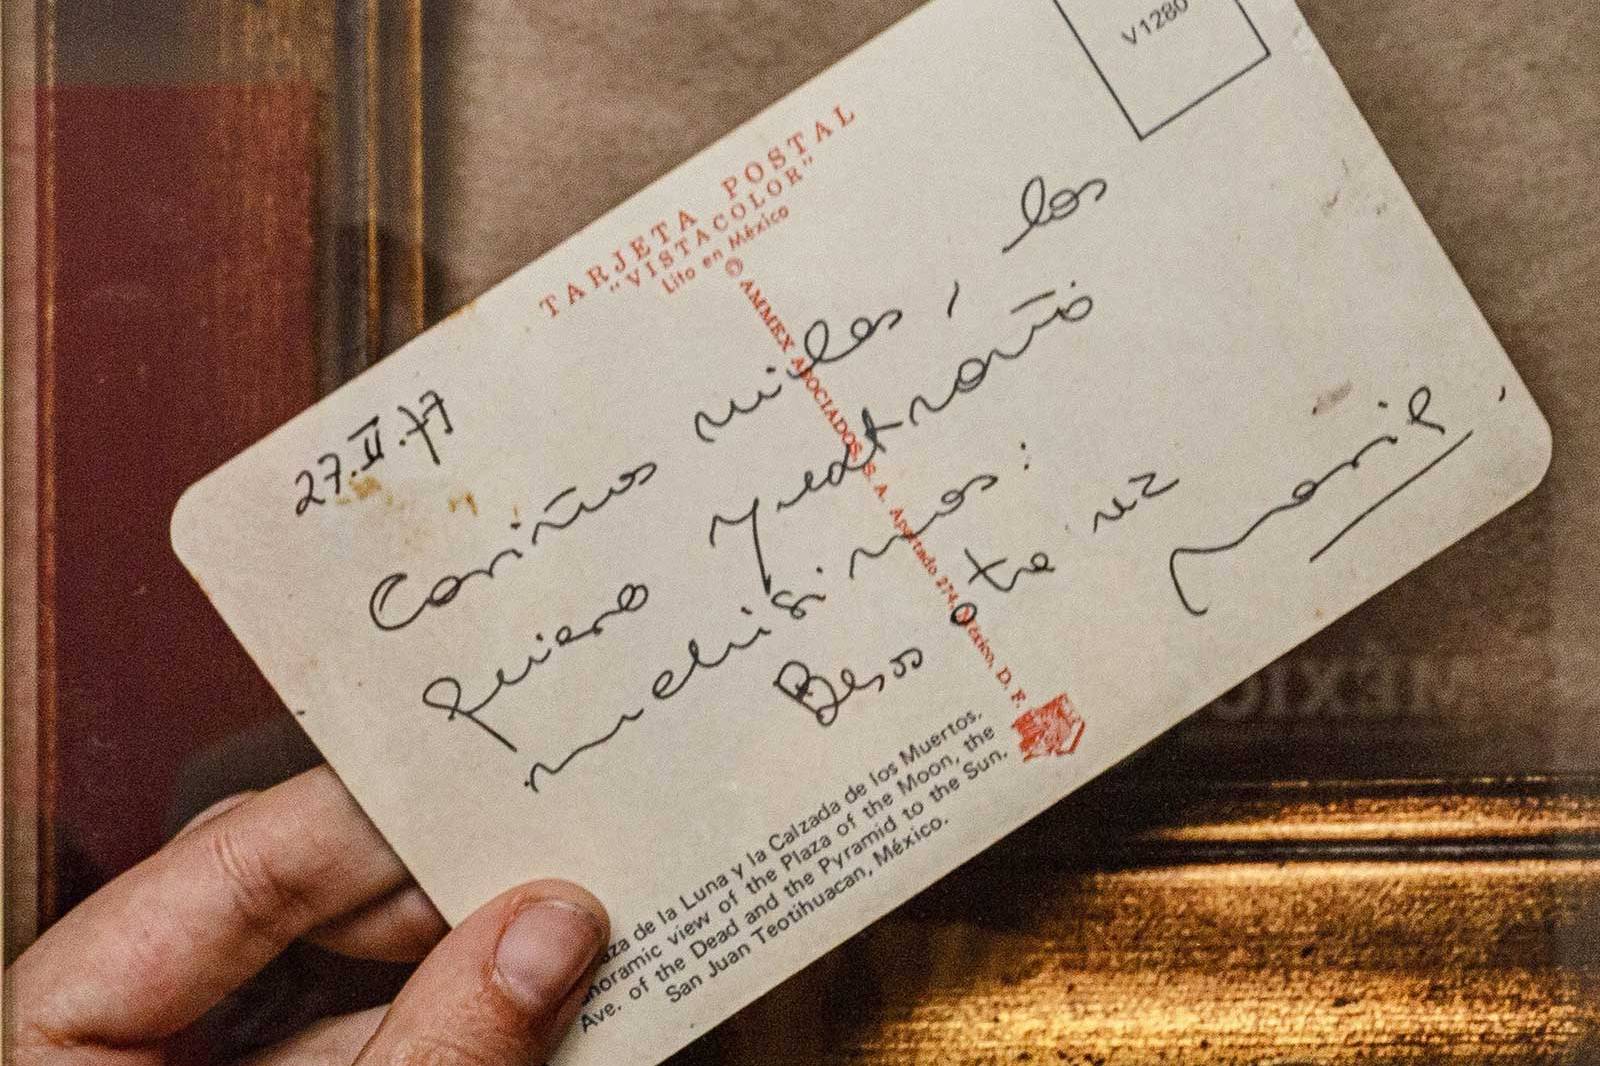 V1280
TARJETA POSTAL
"VISTACOLOR"
Lito en México
© AMMEX ASOCIADOS, S. A. Apartado 274, México, D. F.
27.II.77
Cariños miles, los
quiero y extraño
muchisimos:
Besos otra vez
Maria.
aza de la Luna y la Calzada de los Muertos.
noramic view of the Plaza of the Moon, the
Ave. of the Dead and the Pyramid to the Sun.
San Juan Teotihuacan, México.
MÉXICO